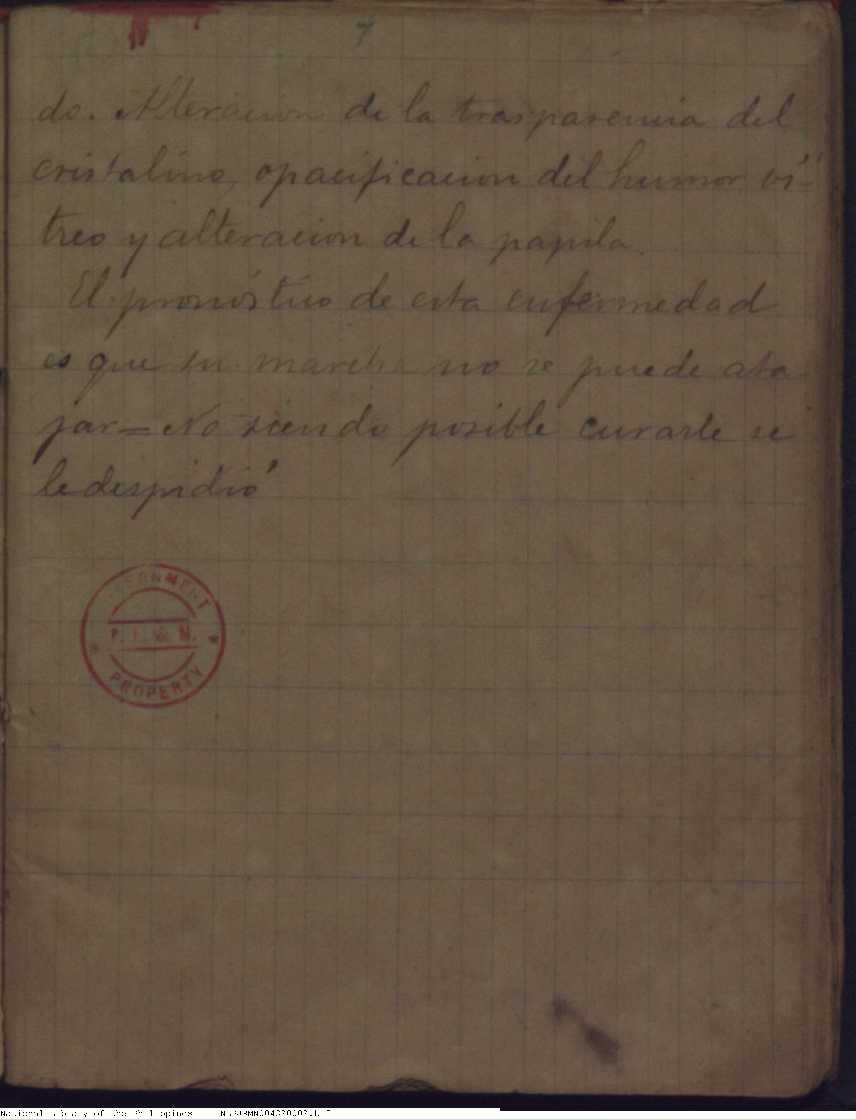 7
do. Alteracion de la trasparencia del
cristalino, opacificacion del humor ví-
treo y alteracion de la papila.
El pronóstico de esta enfermedad
es que su marcha no se puede ata
jar = No siendo posible curarle se
le despidió
GOVERNMENT
PROPERTY
National Library of the Philippines